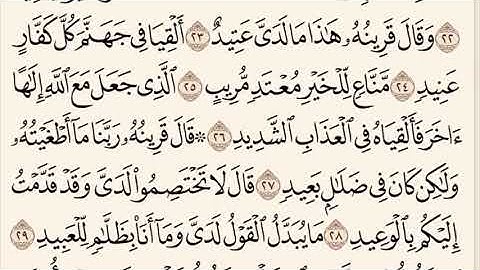 ٢٢ وَقَالَ قَرِينُهُۥ هَٰذَا مَا لَدَىَّ عَتِيدٌ ٢٣ أَلْقِيَا فِى جَهَنَّمَ كُلَّ كَفَّارٍ
عَنِيدٍ ٢٤ مَّنَّاعٍ لِّلْخَيْرِ مُعْتَدٍ مُّرِيبٍ ٢٥ ٱلَّذِى جَعَلَ مَعَ ٱللَّهِ إِلَٰهًا
ءَاخَرَ فَأَلْقِيَاهُ فِى ٱلْعَذَابِ ٱلشَّدِيدِ ٢٦ ۞ قَالَ قَرِينُهُۥ رَبَّنَا مَآ أَطْغَيْتُهُۥ
وَلَٰكِن كَانَ فِى ضَلَٰلٍۭ بَعِيدٍ ٢٧ قَالَ لَا تَخْتَصِمُوا۟ لَدَىَّ وَقَدْ قَدَّمْتُ
إِلَيْكُم بِٱلْوَعِيدِ ٢٨ مَا يُبَدَّلُ ٱلْقَوْلُ لَدَىَّ وَمَآ أَنَا۠ بِظَلَّٰمٍ لِّلْعَبِيدِ ٢٩